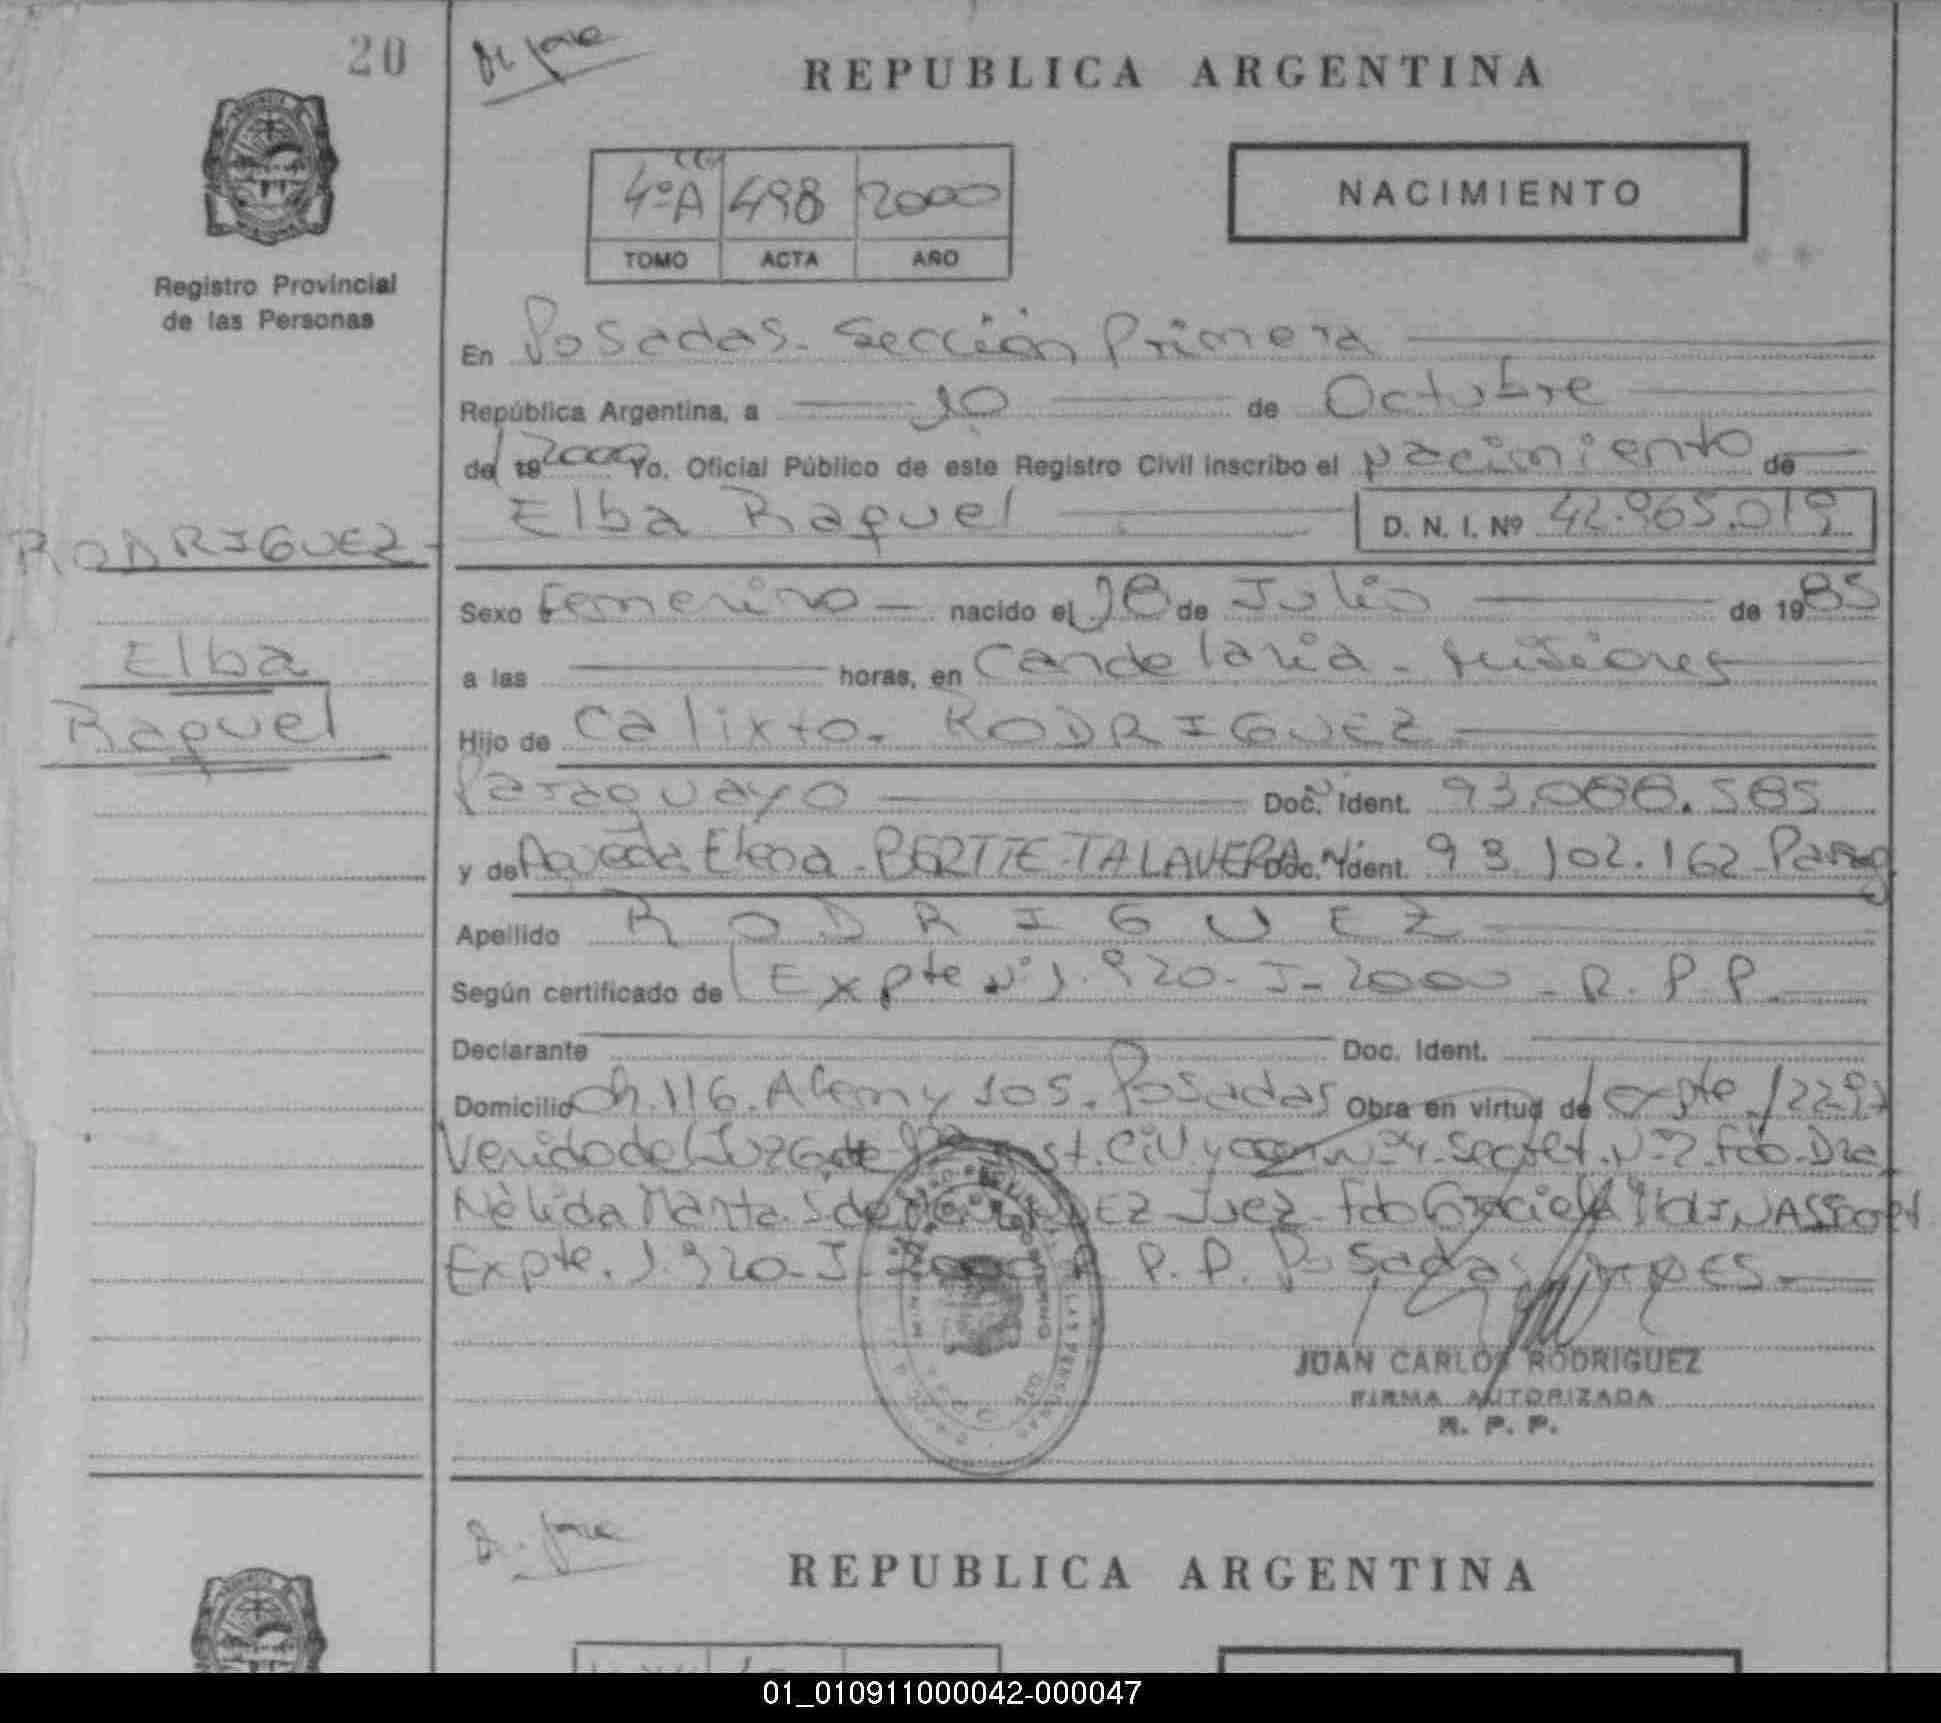 20
REPUBLICA ARGENTINA
4ºA 498 2000
TOMO ACTA AÑO
NACIMIENTO
Registro Provincial
de las Personas
En Posadas. Sección Primera
República Argentina, a 10 de Octubre
del 19 2000 Yo. Oficial Público de este Registro Civil inscribo el nacimiento de
Elba Raquel D. N. I. Nº 42.965.019
RODRIGUEZ
Elba
Raquel
Sexo femenino nacido el 18 de Julio de 1985
a las horas, en Candelaria - Misiones
Hijo de Calixto. RODRIGUEZ
Paraguayo Doc. Ident. 93.088.585
y de Elena - TALAVERA Doc. Ident. 93.102.162 Parag
Apellido RODRIGUEZ
Según certificado de Expte Nº 1.920-J-2000 - R. P. P.
Declarante Doc. Ident.
Domicilio Ch. 116. Alem y 105. Posadas Obra en virtud de expte
Venido del Juzg. de Inst. Civil y Com. Nº 4. Secret. Nº 2. Fdo. Dra
Nélida Marta S de Juez. Fdo
Expte. 1.920-J-2000 R. P. P. Posadas, Mnes.
JUAN CARLOS RODRIGUEZ
FIRMA AUTORIZADA
R. P. P.
REPUBLICA ARGENTINA
01_010911000042-000047